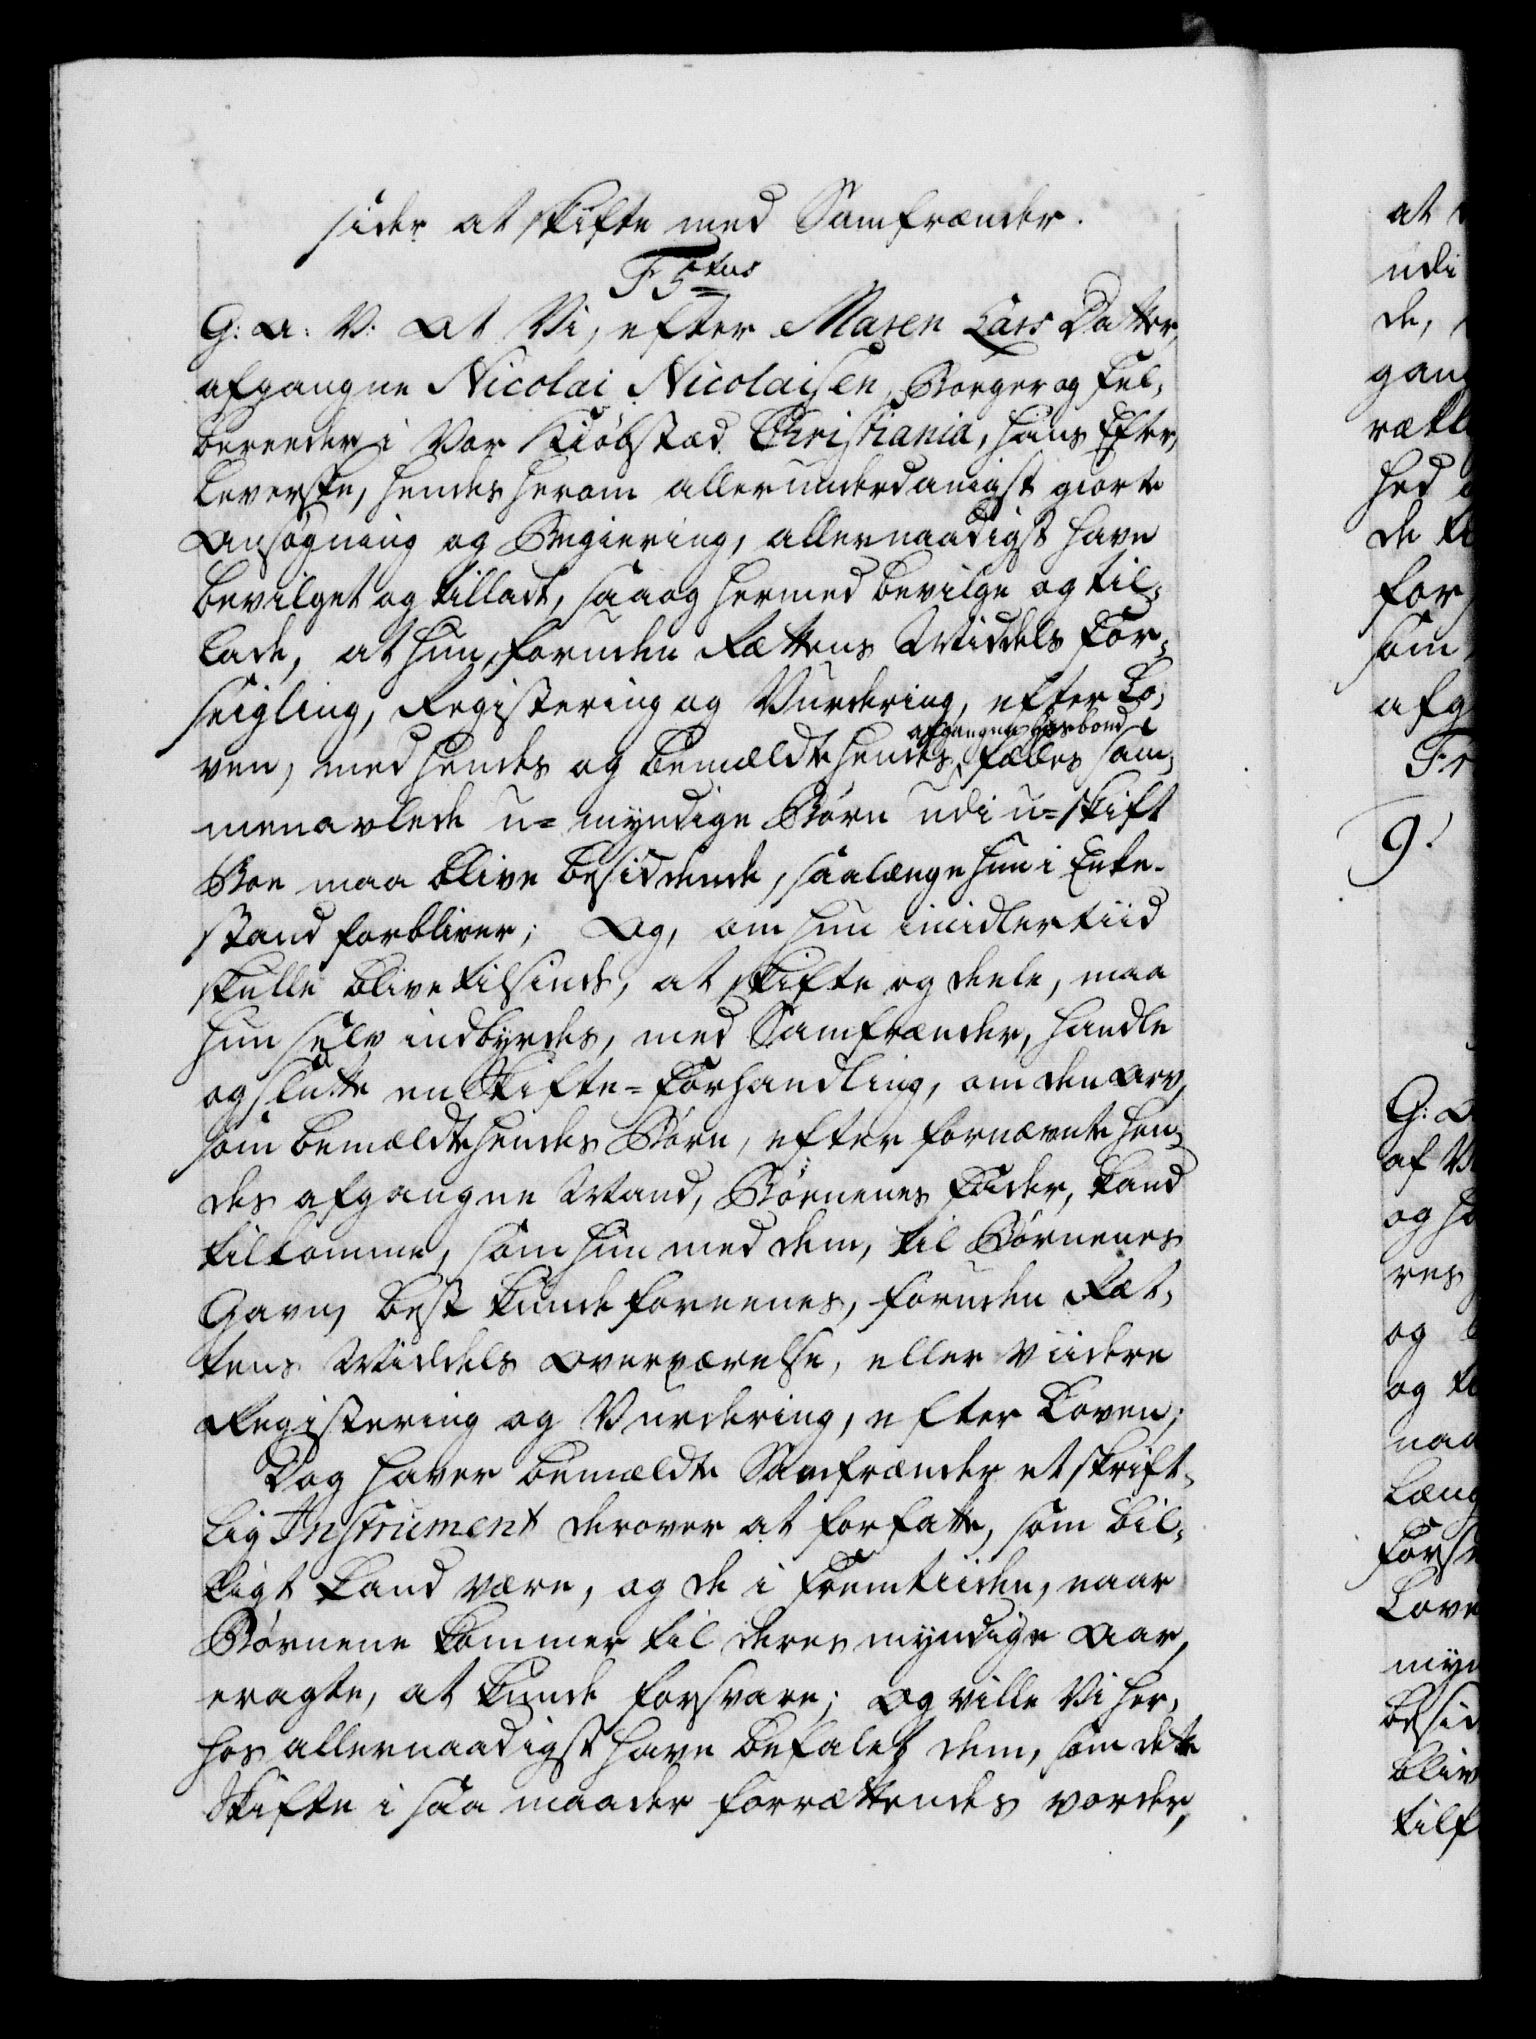 sider at skifte med Samfrænder.
F 5tus
G: A: V: At Vi, efter Maren Lars Datter,
afgangne Nicolai Nicolaisen, Borger og Fel-
bereeder i Vor Kiøbstæd Christiania, hans Efter-
leverske, hendes herom allerunderdanigst giorte
Ansøgning og Begiering, allernaadigst have
bevilget og tilladt, saa og hermed bevilge og til-
lade, at hun, foruden Rættens Middels For-
seigling, Registering og Vurdering, efter Lo-
afgangne Hosbond i
ven, med hendes og bemældte hendes fælles sam-
menavlede u-myndige Børn udi u-skift
Boe maa blive besiddende, saalænge hun i Enke-
stand forbliver; Og, om hun imidlertiid
skulle blive tilsinds, at skifte og deele, maa
hun selv indbyrdes, med Samfrænder, handle
og slutte en Skifte-Forhandling, om den Arv,
som bemældte hendes Børn, efter fornævnte hen-
des afgangne Mand, Børnenes Fader, kand
tilkomme, som hun med dem, til Børnenes
Gavn, best kunde foreenes, foruden Ræt-
tens Middels Overværelse, eller viidere
Registering og Vurdering, efter Loven;
Dog haver bemældte Samfrænder et skrift-
lig Instrument derover at forfatte, som bil-
ligt kand være, og de i Fremtiiden, naar
Børnene kommer til deres myndige Aar,
eragte, at kunde forsvare; Og ville Vi her-
hos allernaadigst have befalet dem, som dette
Skifte i saa maader forrættendes vorder,
at
udi
de,
gang
rætt
hed
de
for
som
afg
9.
G: A
af V
og
res
og
og
naa
læng
Forse
Love
myn
besid
bliv
tilf